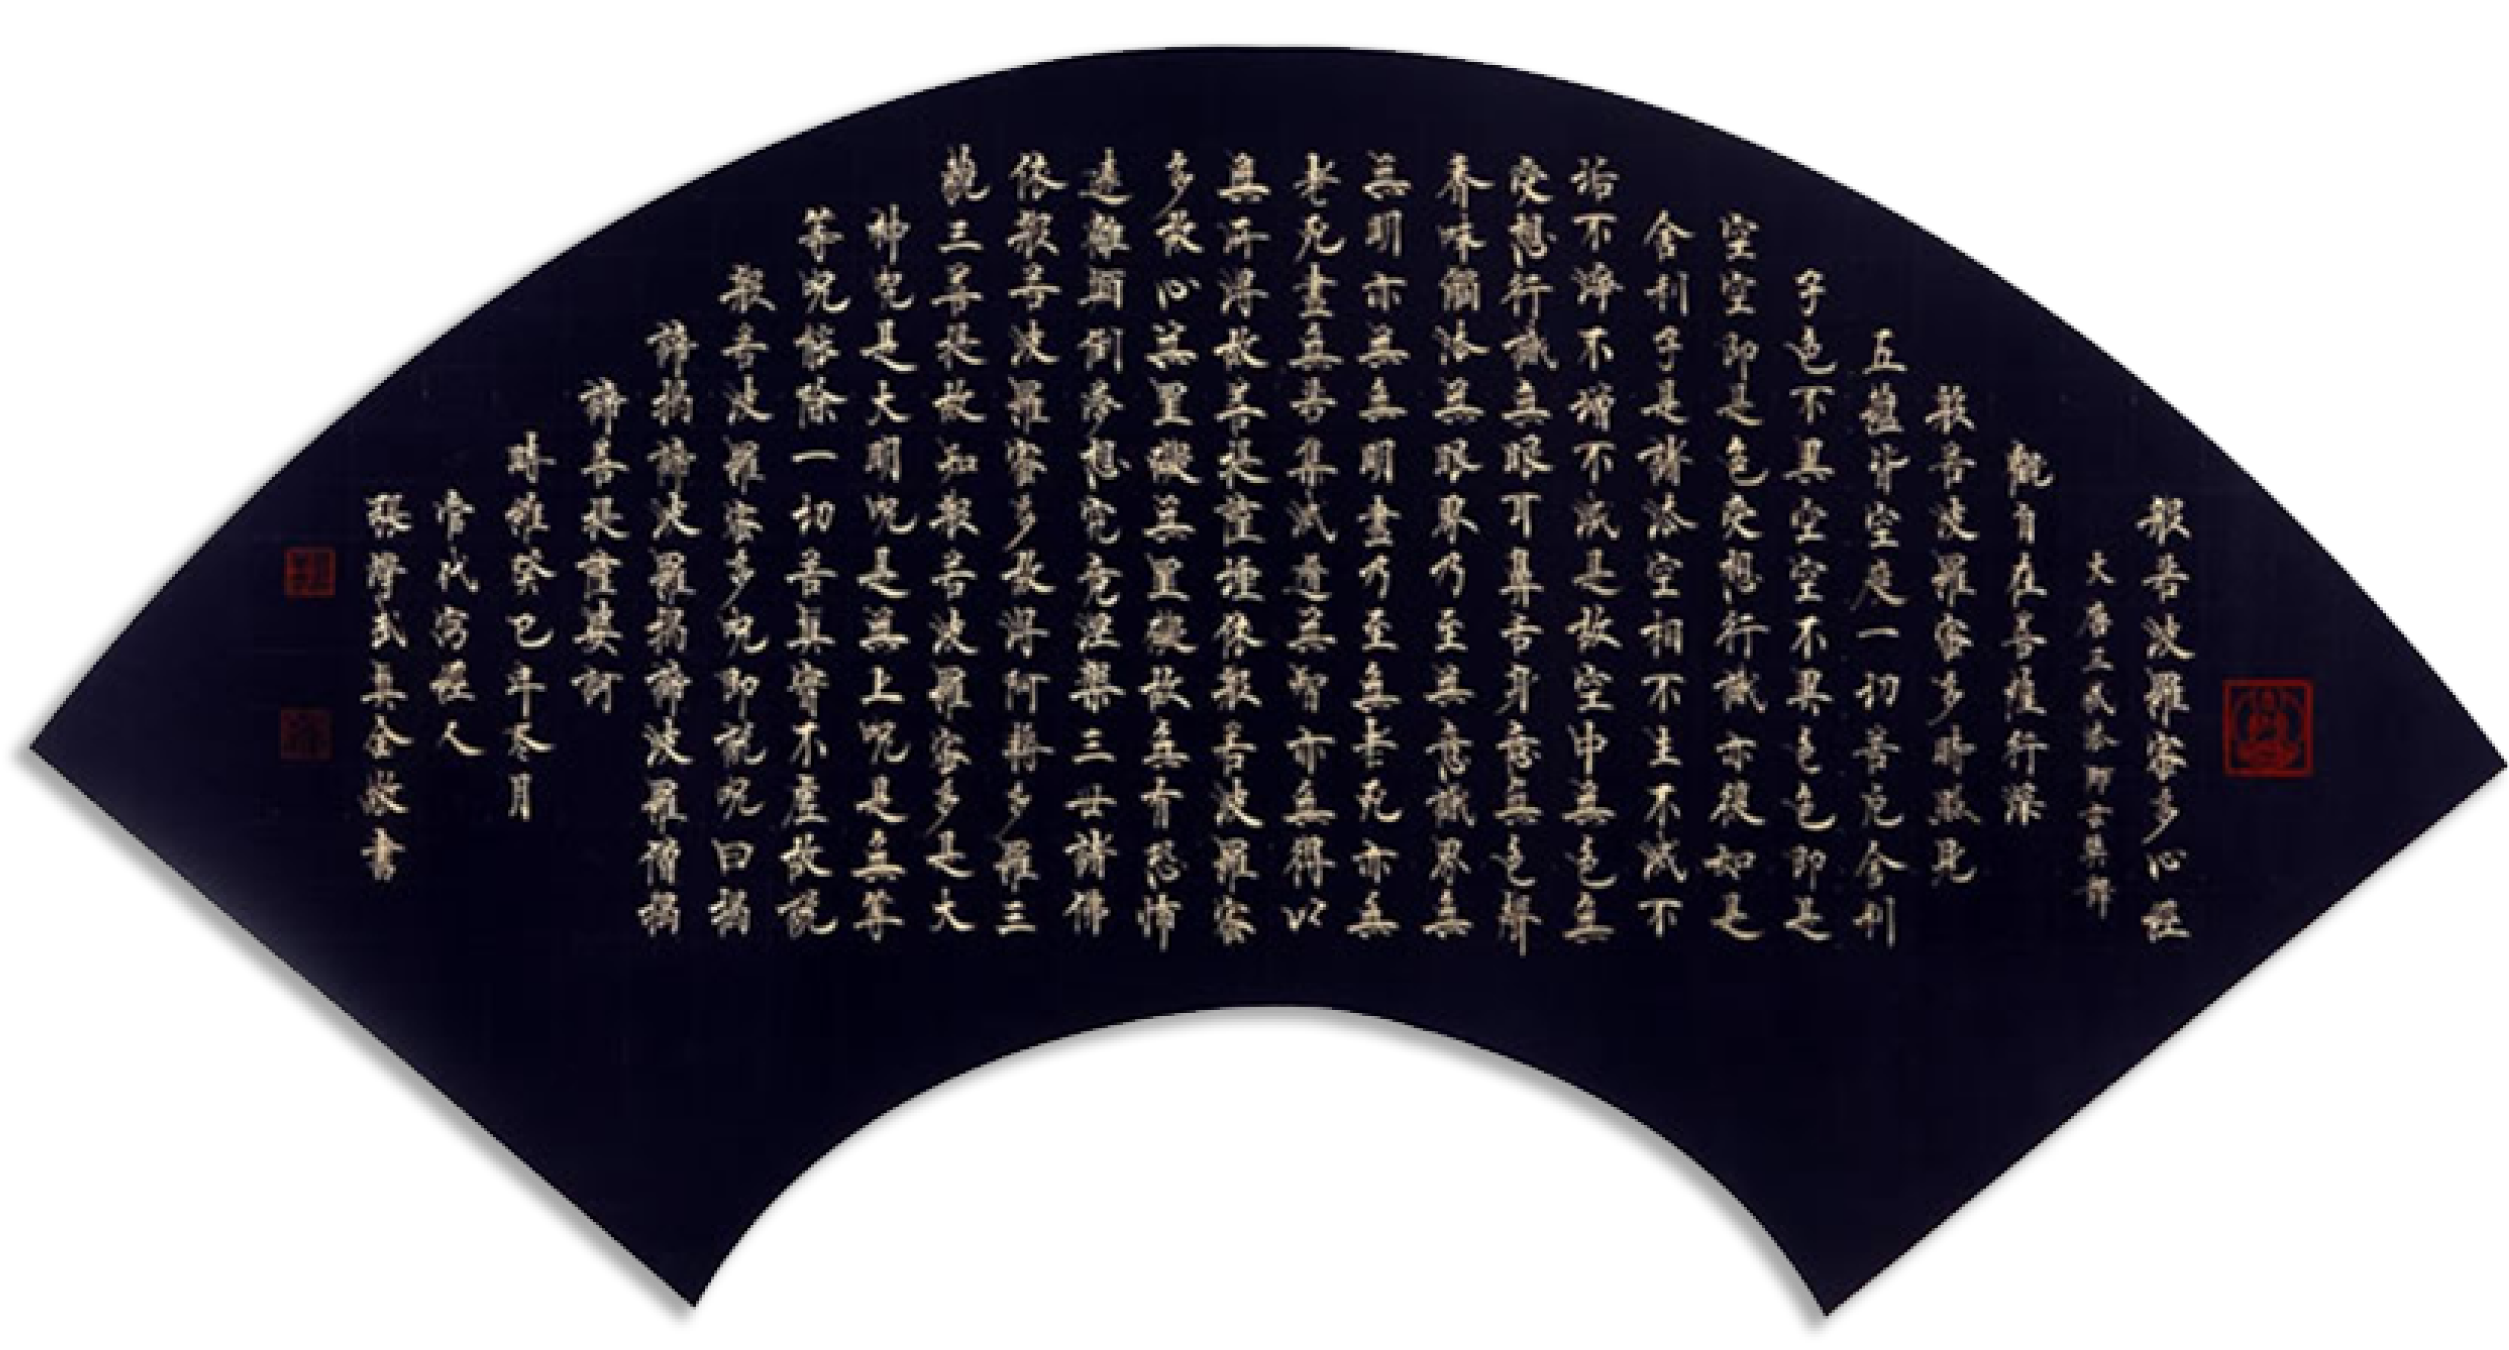 般若波羅蜜多心經
大唐三藏法師玄奘譯
觀自在菩薩行深
般若波羅蜜多時照見
五蘊皆空度一切苦厄舍利
子色不異空空不異色色即是
空空即是色受想行識亦復如是
舍利子是諸法空相不生不滅不
垢不淨不增不減是故空中無色無
受想行識無眼耳鼻舌身意無色聲
香味觸法無眼界乃至無意識界無
無明亦無無明盡乃至無老死亦無
老死盡無苦集滅道無智亦無得以
無所得故菩提薩埵依般若波羅蜜
多故心無罣礙無罣礙故無有恐怖
遠離顛倒夢想究竟涅槃三世諸佛
依般若波羅蜜多故得阿耨多羅三
藐三菩提故知般若波羅蜜多是大
神咒是大明咒是無上咒是無等
等咒能除一切苦真實不虛故說
般若波羅蜜多咒即說咒曰揭
諦揭諦波羅揭諦波羅僧揭
諦菩提薩婆訶
時維癸巳年冬月
當代寫經人
張學武真金敬書